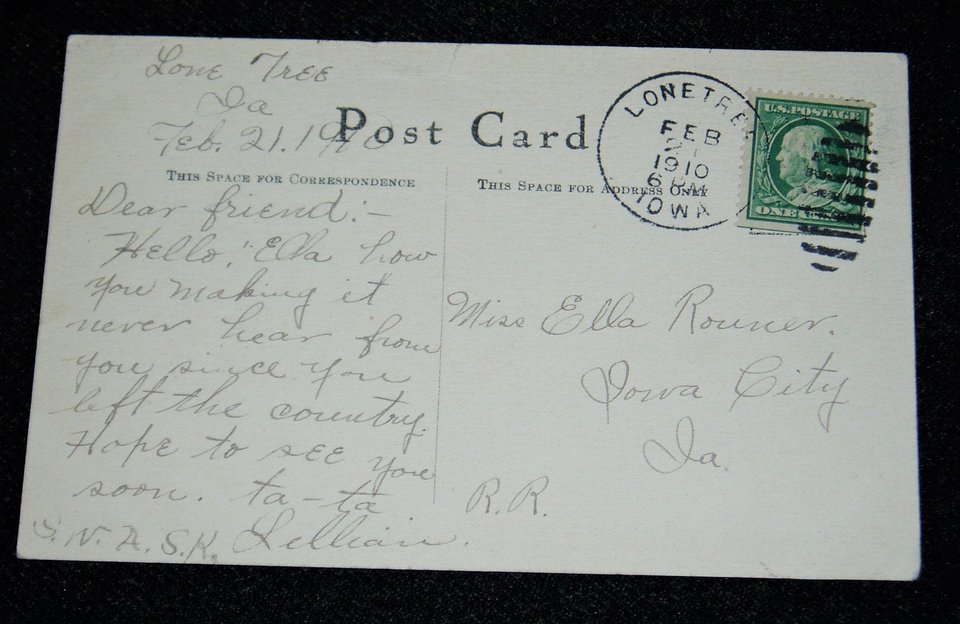 Lone Tree
Ia
Feb. 21. 1910
Post Card
THIS SPACE FOR CORRESPONDENCE
Dear friend:-
Hello, Ella how
you making it
never hear from
you since you
left the country.
Hope to see you
soon. ta-ta
S.W.A.S.K. Lillian.
THIS SPACE FOR ADDRESS ONLY
LONE TREE
FEB
21
1910
6 PM
IOWA
U.S. POSTAGE
ONE
Miss Ella Rouner.
Iowa City
Ia.
R.R.